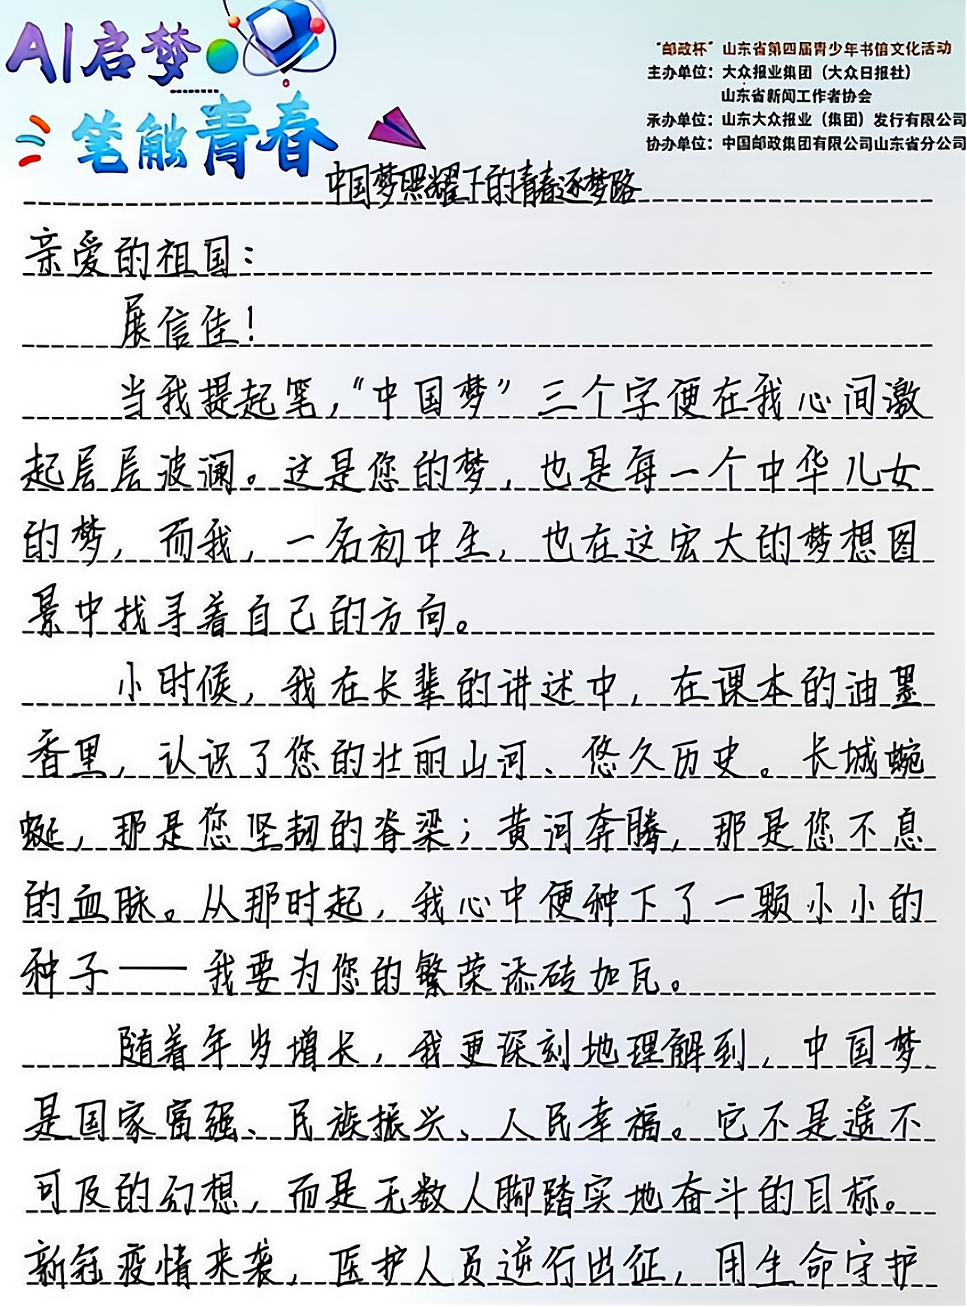 AI启梦
笔触青春
“邮政杯”山东省第四届青少年书信文化活动
主办单位：大众报业集团（大众日报社）
山东省新闻工作者协会
承办单位：山东大众报业（集团）发行有限公司
协办单位：中国邮政集团有限公司山东省分公司
中国梦照耀下的青春逐梦路
亲爱的祖国：
展信佳！
当我提起笔，“中国梦”三个字便在我心间激
起层层波澜。这是您的梦，也是每一个中华儿女
的梦，而我，一名初中生，也在这宏大的梦想图
景中找寻着自己的方向。
小时候，我在长辈的讲述中，在课本的油墨
香里，认识了您的壮丽山河、悠久历史。长城蜿
蜒，那是您坚韧的脊梁；黄河奔腾，那是您不息
的血脉。从那时起，我心中便种下了一颗小小的
种子——我要为您的繁荣添砖加瓦。
随着年岁增长，我更深刻地理解到，中国梦
是国家富强、民族振兴、人民幸福。它不是遥不
可及的幻想，而是无数人脚踏实地奋斗的目标。
新冠疫情来袭，医护人员逆行出征，用生命守护